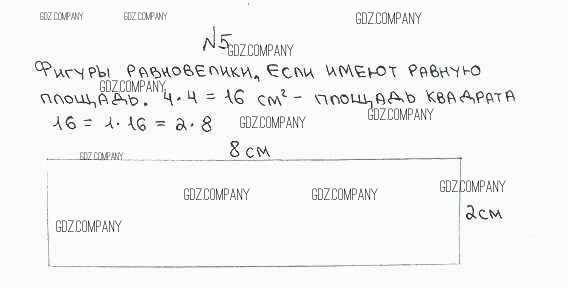 GDZ.COMPANY GDZ.COMPANY GDZ.COMPANY
№5
GDZ.COMPANY
Фигуры равновелики, если имеют равную
GDZ.COMPANY
площадь. 4·4=16 см² - площадь квадрата
16 = 1·16 = 2·8 GDZ.COMPANY GDZ.COMPANY
8 см
GDZ.COMPANY
GDZ.COMPANY GDZ.COMPANY GDZ.COMPANY
2 см
GDZ.COMPANY